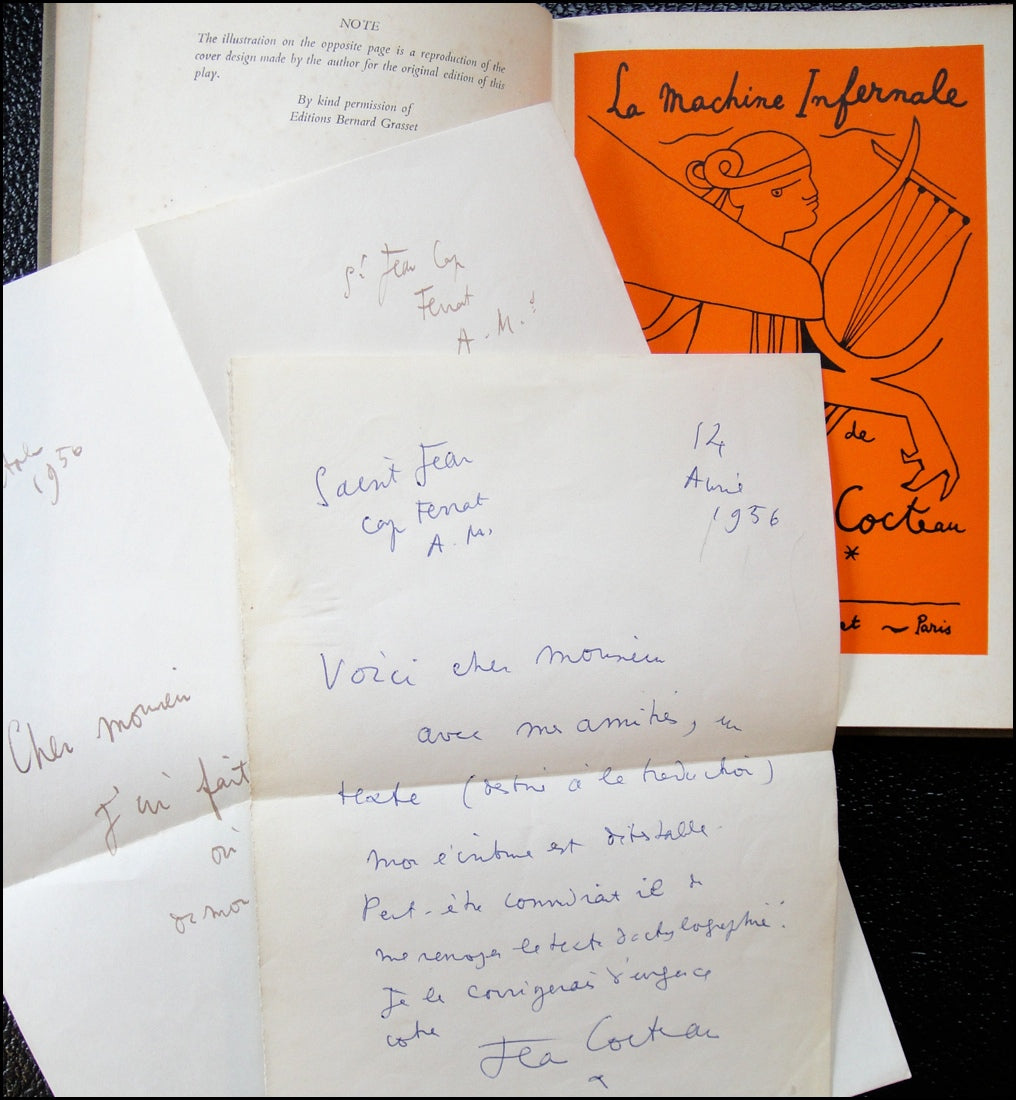 NOTE
The illustration on the opposite page is a reproduction of the
cover design made by the author for the original edition of this
play.
By kind permission of
Editions Bernard Grasset
La Machine Infernale
de
Cocteau
*
et ~ Paris
St Jean Cap
Ferrat
A.M.
1956
Cher monsieur
J'ai fait
où
de mon
Saint Jean
Cap Ferrat
A.M.
12
Avril
1956
Voici cher monsieur
avec mes amitiés, un
texte (destiné à la traduction)
Mon écriture est détestable.
Peut-être conviendrait il de
me renvoyer le texte dactylographié.
Je le corrigerais d'urgence
votre
Jean Cocteau
*